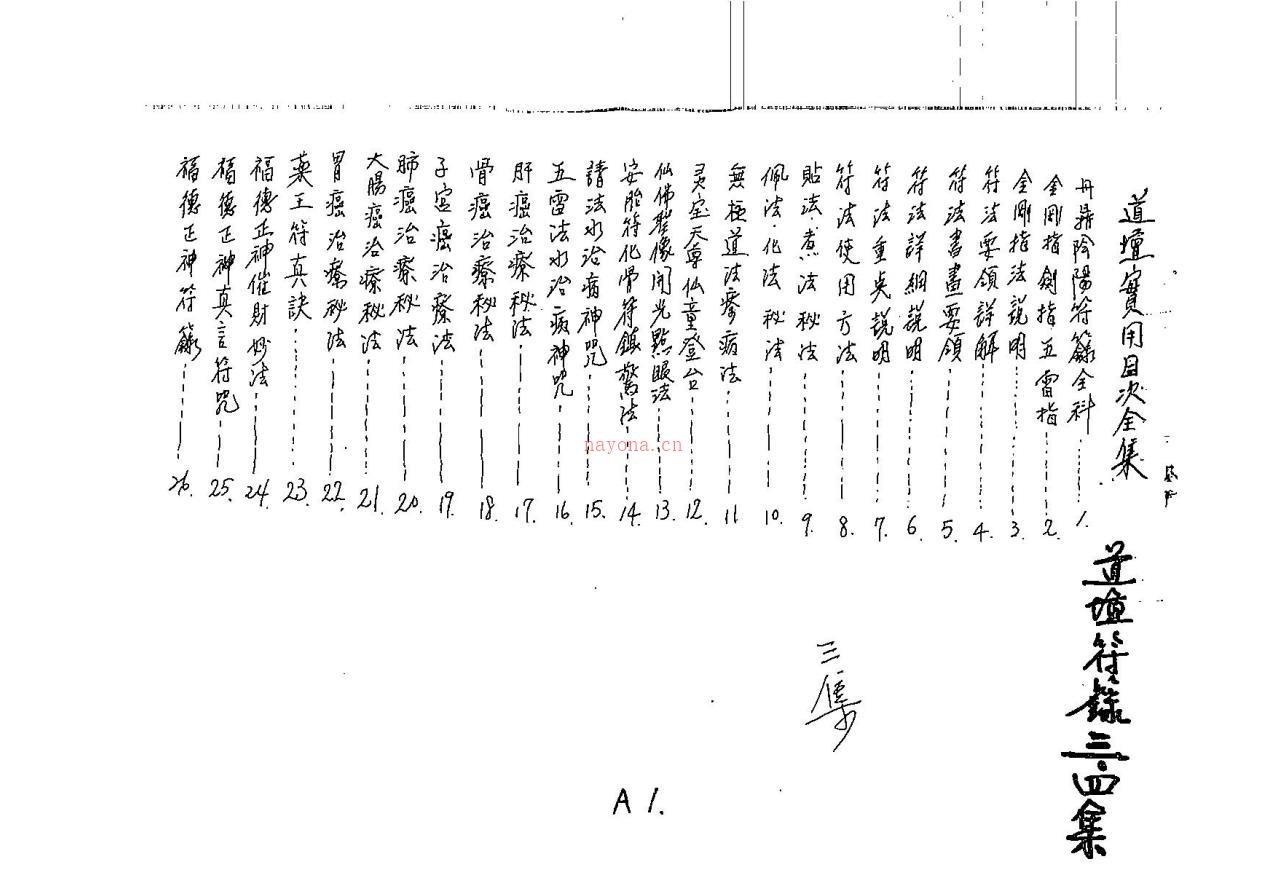 道壇實用目次全集
丹鼎陰陽符籙全科 1.
金剛指劍指五雷指 2.
金剛指法說明 3.
符法要領詳解 4.
符法書畫要領 5.
符法詳細說明 6.
符法重点說明 7.
符法使用方法 8.
貼法.煮法秘法 9.
佩法.化法秘法 10.
無極道法療病法 11
灵宝天尊仙童登台 12.
仙佛聖像開光點眼法 13.
安胎符化骨符鎮驚法 14.
請法水治病神咒 15.
五雷法水治病神咒 16.
肝癌治療秘法 17.
骨癌治療秘法 18.
子宮癌治療法 19.
肺癌治療秘法 20.
大腸癌治療秘法 21.
胃癌治療秘法 22.
藥王符真訣 23.
福德正神催財妙法 24.
福德正神真言符咒 25.
福德正神符籙 26.
道壇符籙三.四集
三集
A1.
nayona.cn